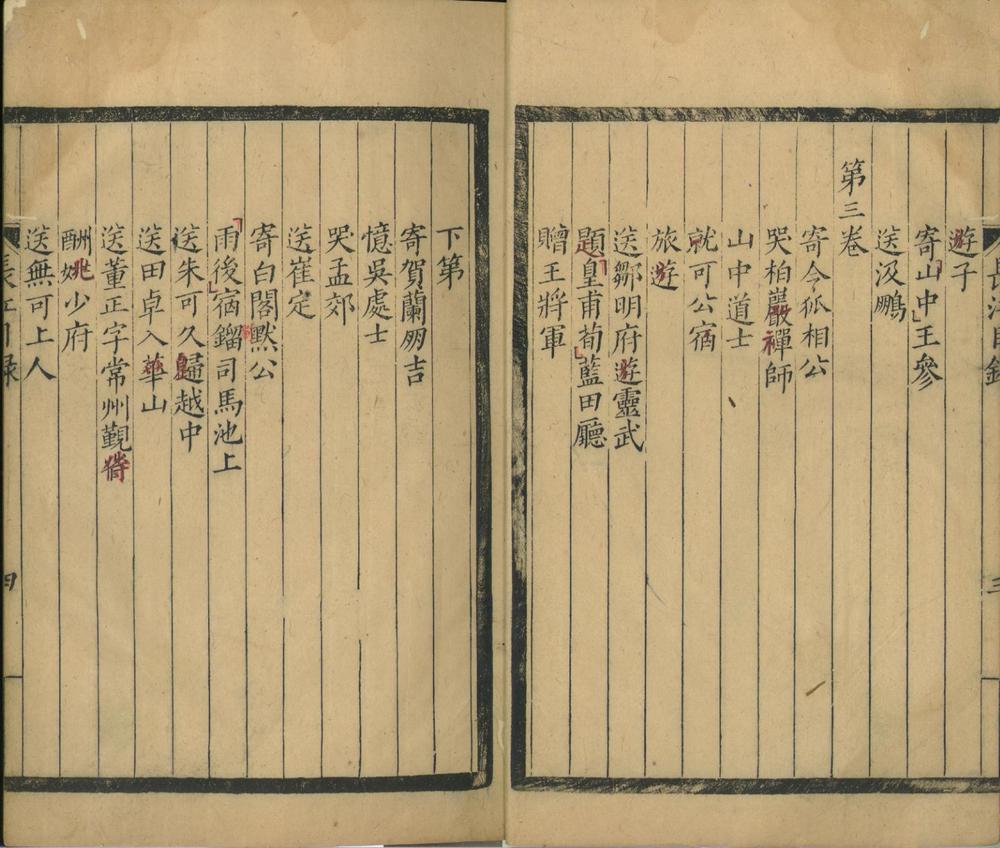 長江目錄
三
遊子
寄山中王參
送汲鵬
第三卷
寄令狐相公
哭柏巖禪師
山中道士
就可公宿
旅遊
送鄒明府遊靈武
題皇甫荀藍田廳
贈王將軍
下第
寄賀蘭朋吉
憶吳處士
哭孟郊
送崔定
寄白閣默公
雨後宿鎦司馬池上
送朱可久歸越中
送田卓入華山
送董正字常州覲省
酬姚少府
送無可上人
長江目錄
四